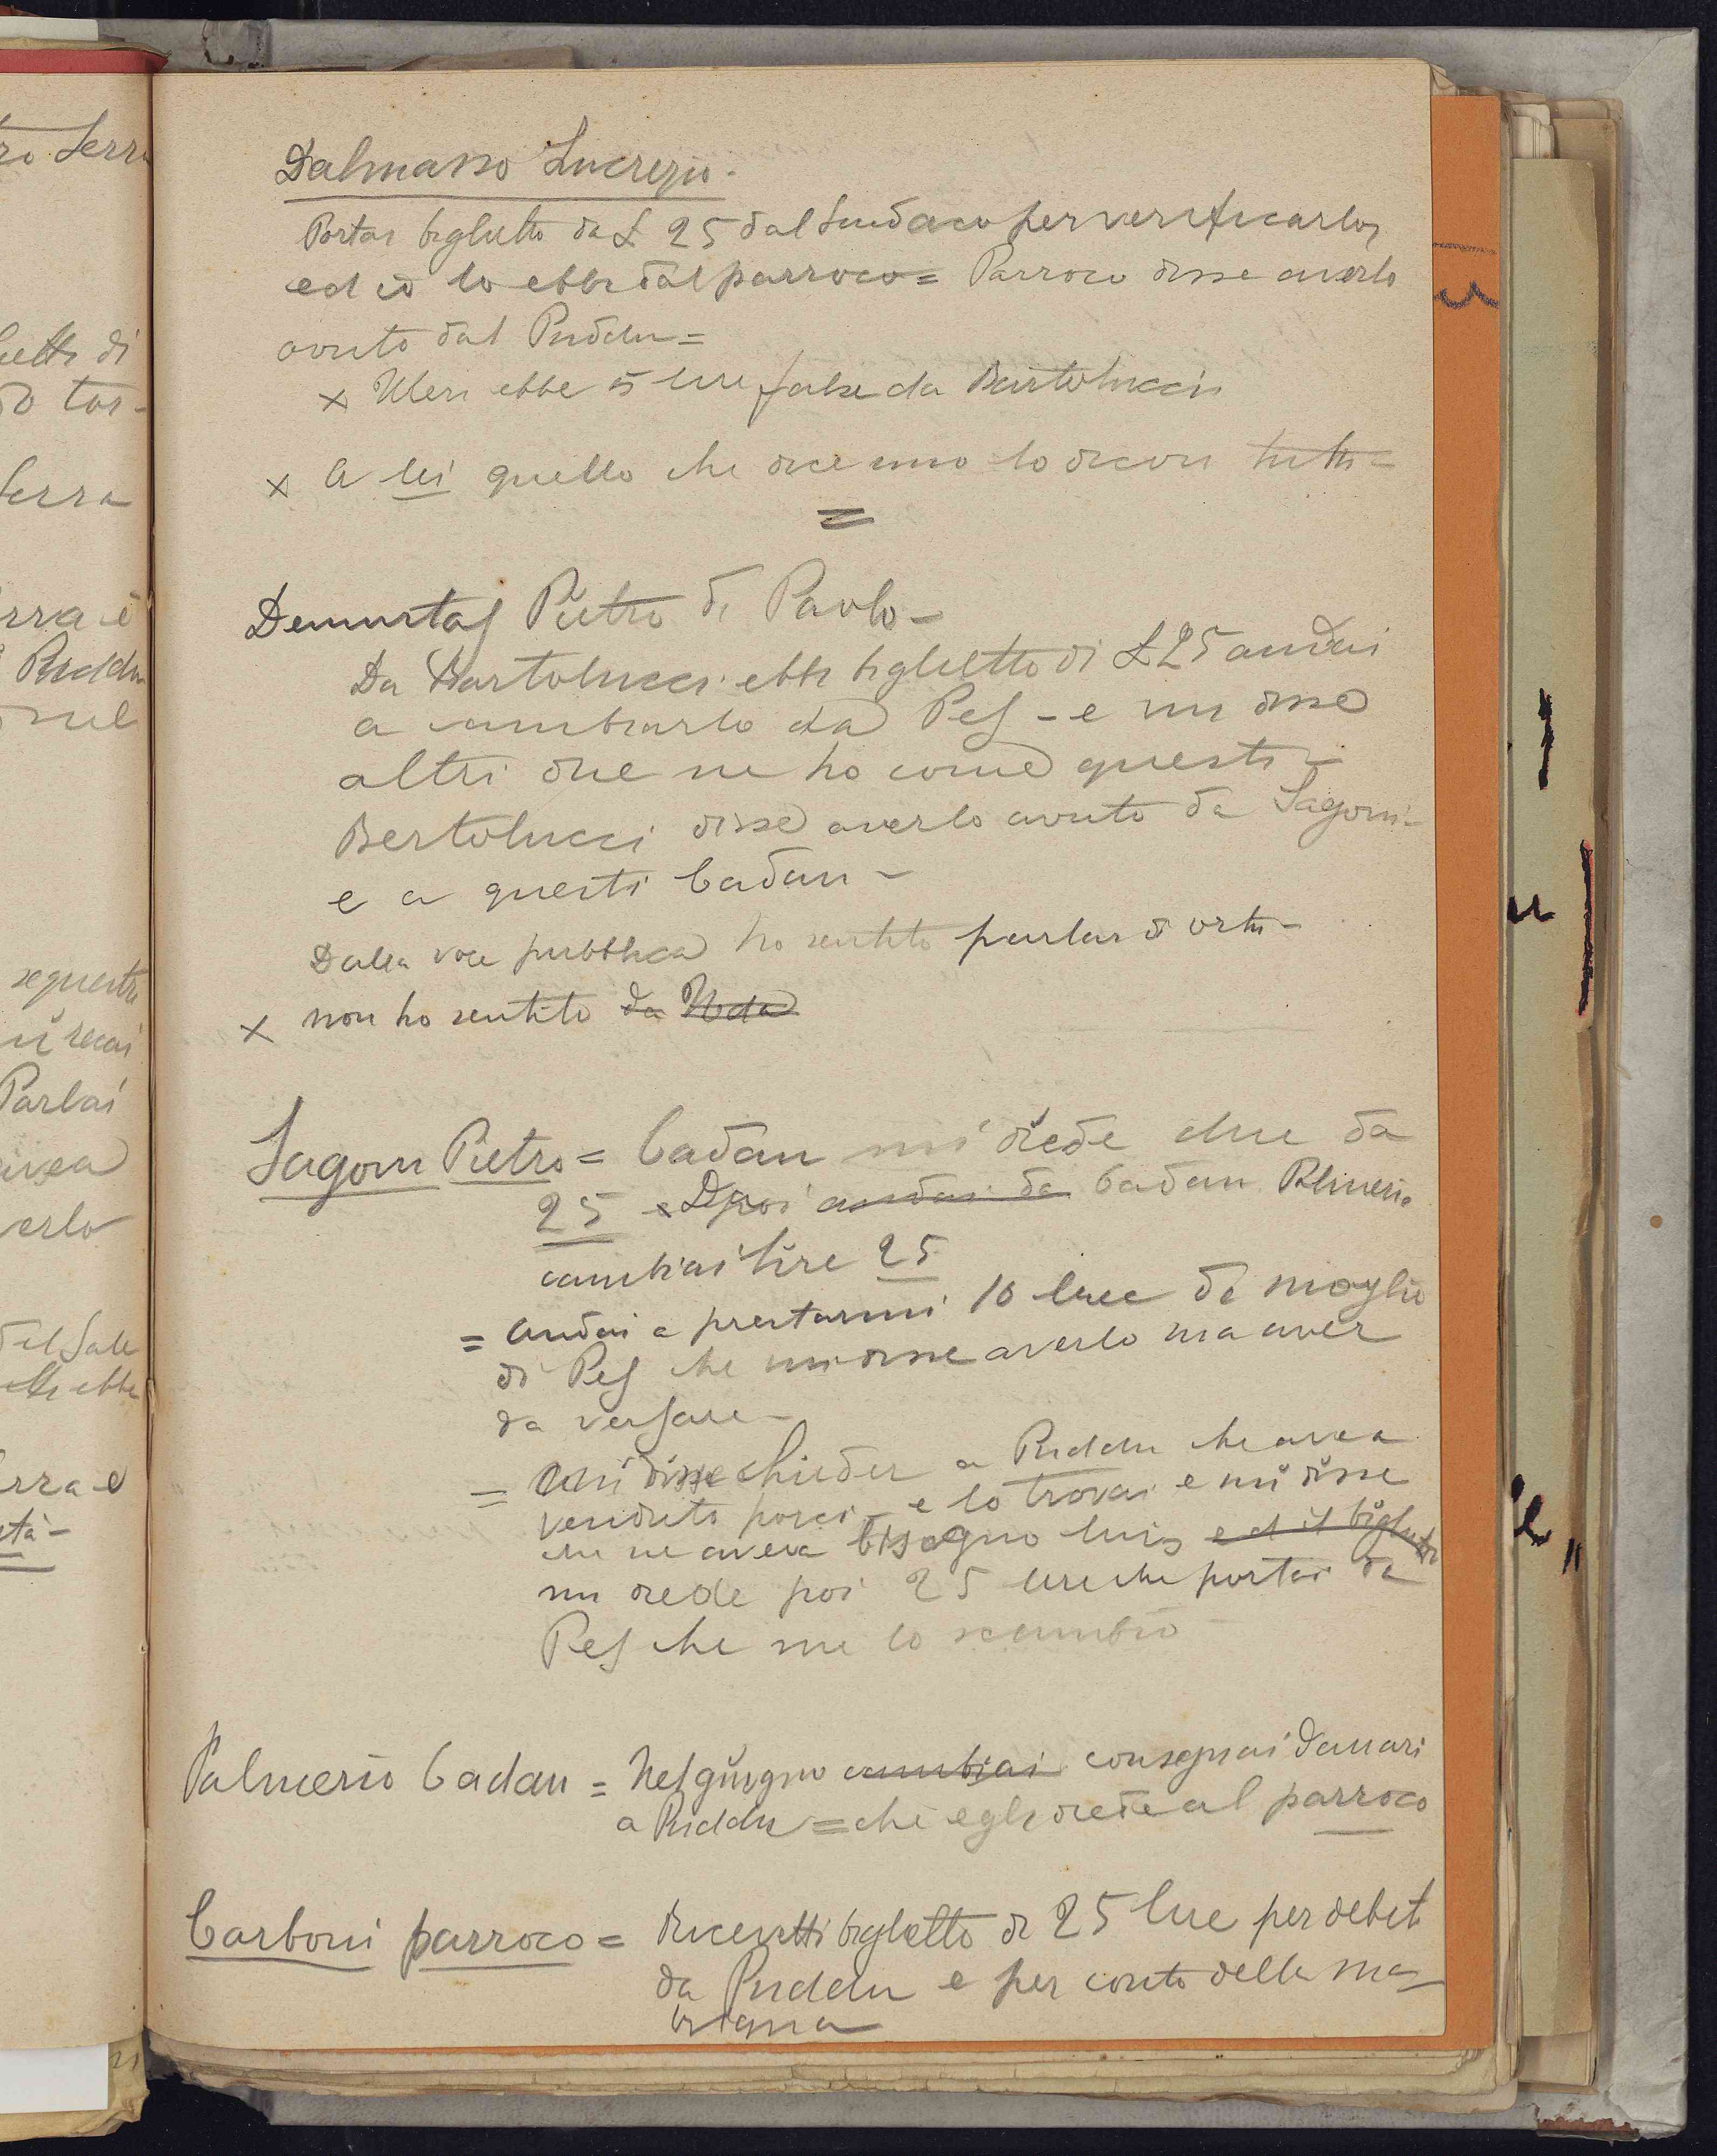 Dalmasso Lucrezio.
Portai biglietto da £ 25 dal Sindaco per verificarlo,
ed io lo ebbi dal parroco = Parroco disse averlo
avuto dal Puddu =
x Uleri ebbe 5 lire false da Bartolucci
x A lei quello che dice uno lo dicon tutti =
=
Demurtas Pietro di Paolo -
Da Bartolucci ebbi biglietto di £ 25 andai
a cambiarlo da Pes - e mi disse
altri due ne ho come questi -
Bertolucci disse averlo avuto da Sagoni -
e a questi Cadau -
Dalla voce pubblica ho sentito parlar di Ortu -
x non ho sentito da
Sagoni Pietro = Cadau mi diede due da
25 e Depoi andai da Cadau Palmerio
cambiai lire 25
= Andai a prestarmi 10 lire da moglie
di Pes che mi disse averlo ma aver
da versare -
= mi disse chieder a Puddu che avea
venduto porci - e lo trovai e mi disse
che ne aveva bisogno lui ed il biglietto
mi diede poi 25 lire che portai da
Pes che me lo scambiò
Palmerio Cadau = Nel giugno cambiai consegnai danari
a Puddu = che egli diede al parroco
Carboni parroco = Ricevetti biglietto di 25 lire per debito
da Puddu e per conto della ma-
trigna
ro Serra
lietti di
do tor-
Serra
rra è
Puddu
nel
sequestr
recai
Parlai
avea
verlo
del Sale
ebbe
rra e
età -